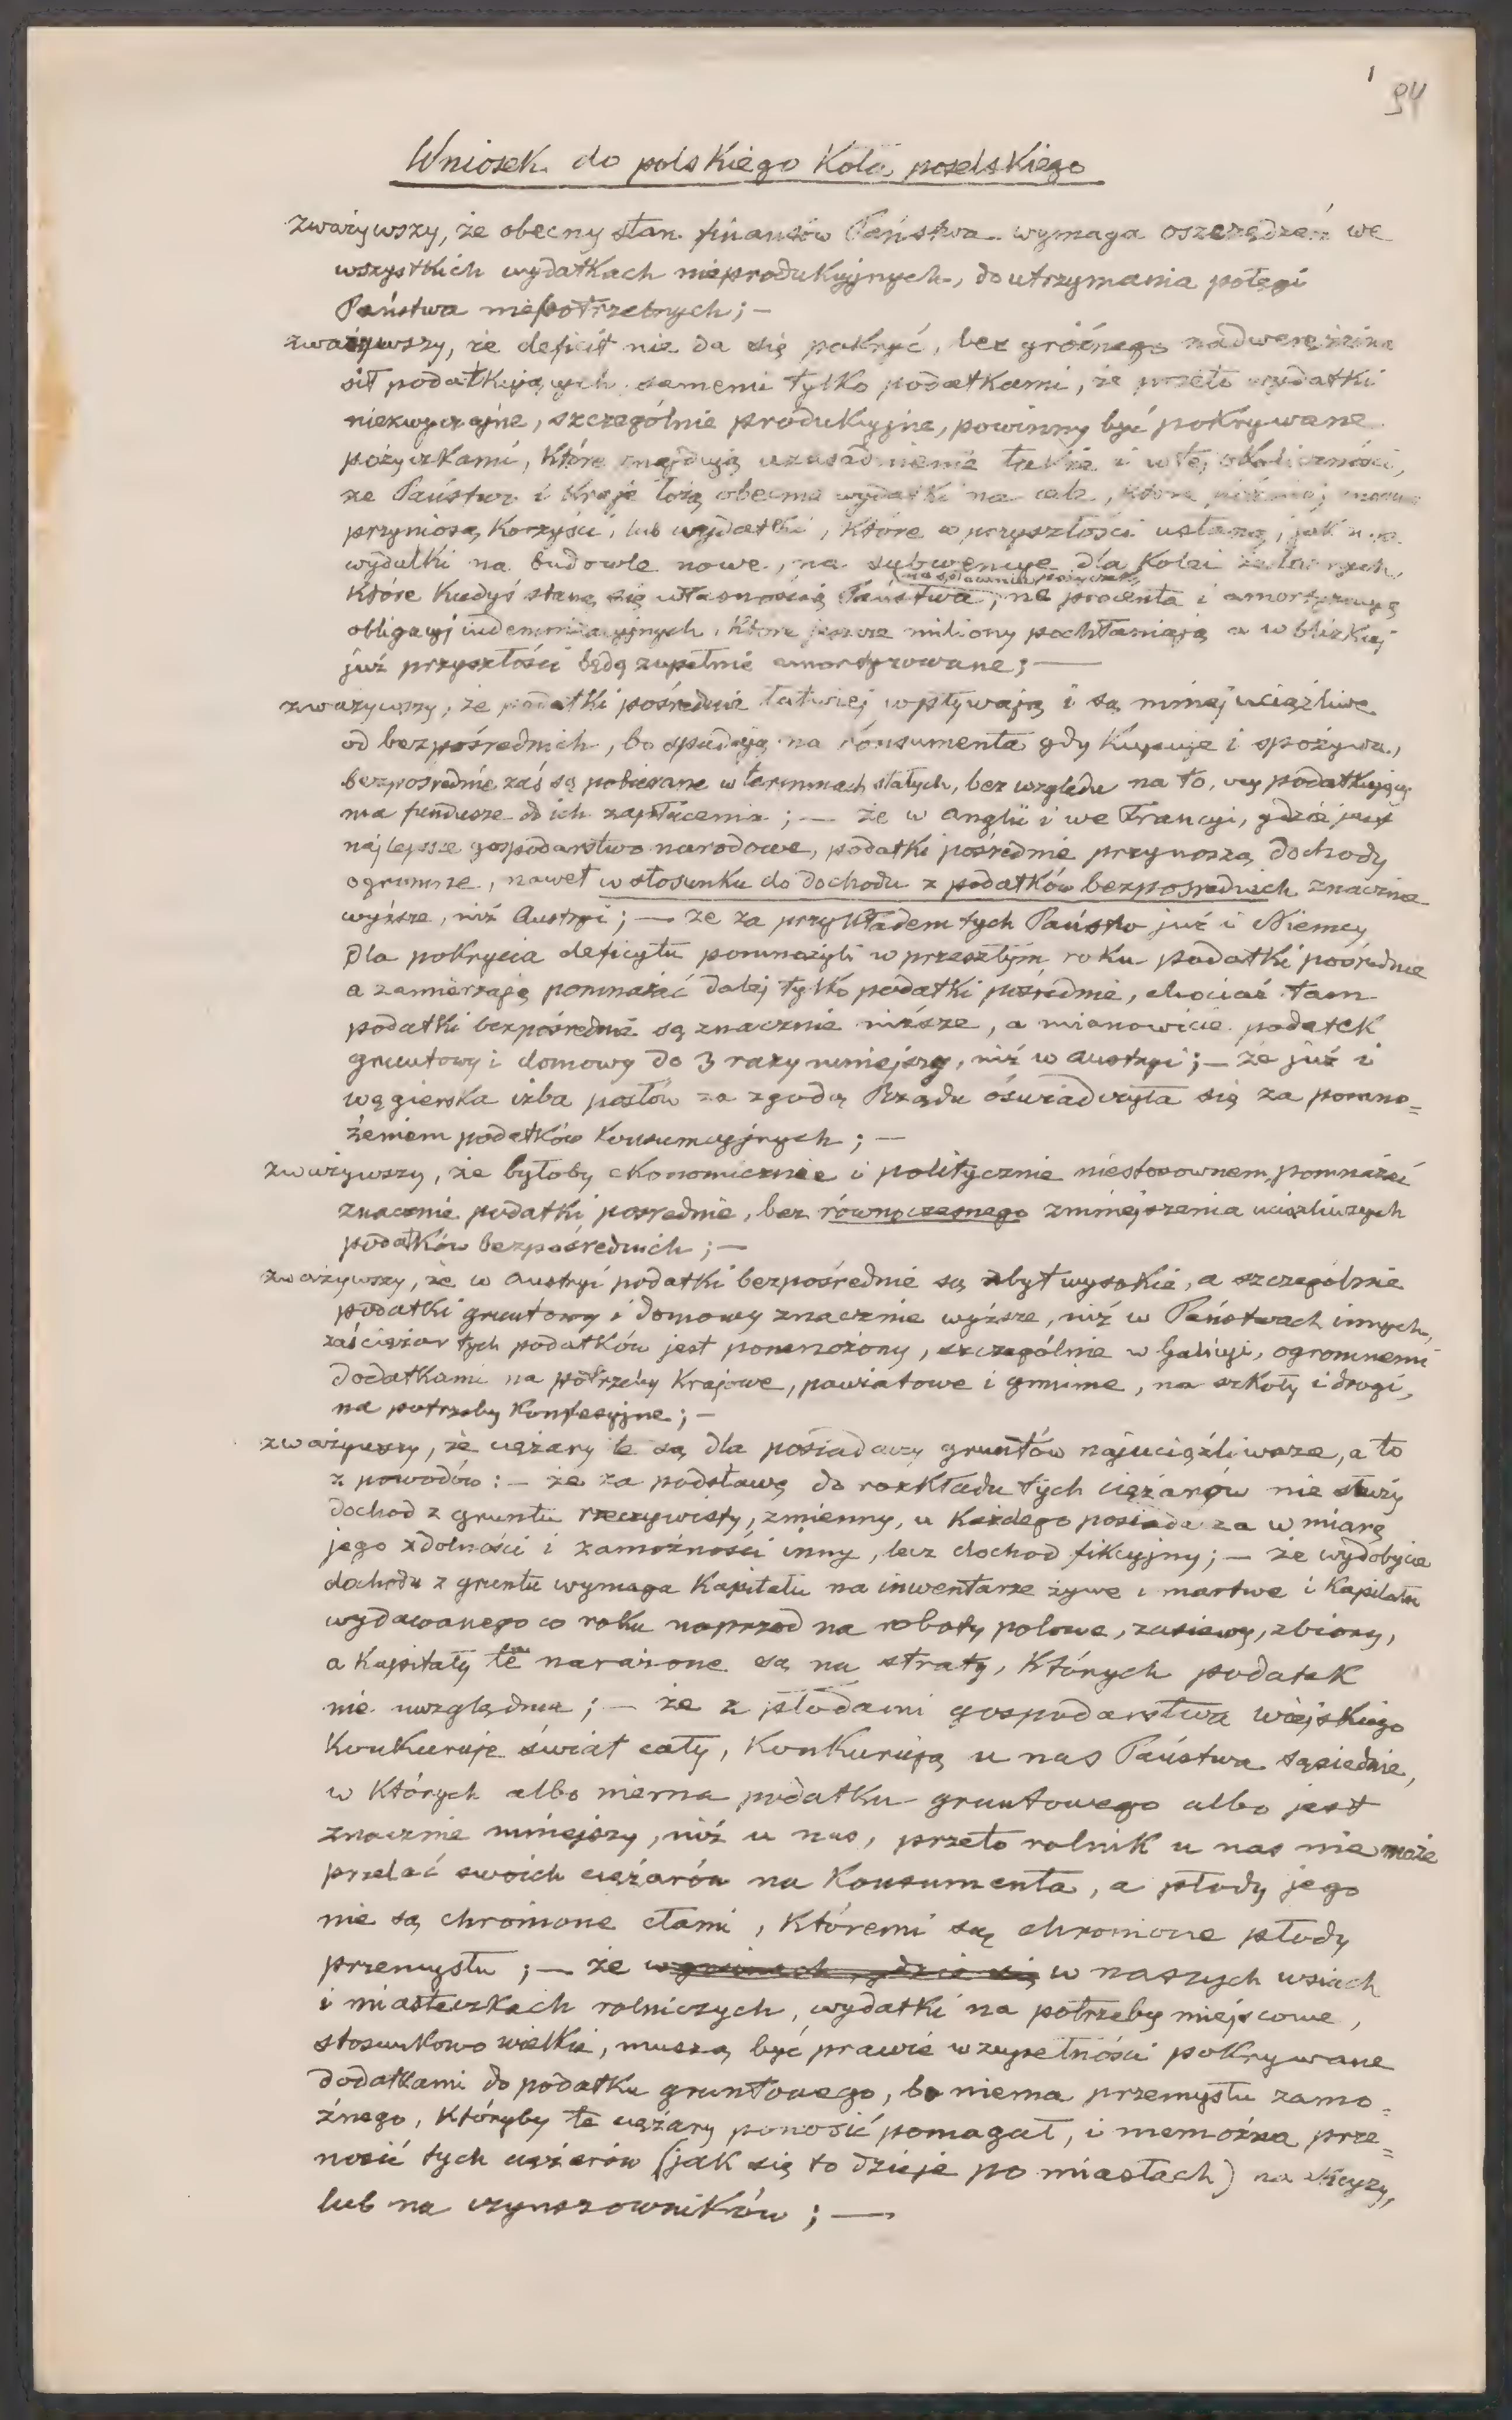 1
94
Wniosek do polskiego Koła poselskiego
zważywszy, że obecny stan finansów Państwa wymaga oszczędzeń we
wszystkich wydatkach nieprodukcyjnych, do utrzymania potęgi
Państwa niepotrzebnych; —
zważywszy, że deficit nie da się pokryć, bez groźnego nadwerężenia
sił podatkujących samemi tylko podatkami, że przeto wydatki
niezwyczajne, szczególnie produkcyjne, powinny być pokrywane
pożyczkami, które znajdują uzasadnienie także i w tej okoliczności,
że Państwo i Kraje łożą obecnie wydatki na cele, które później
przyniosą korzyści, lub wydatki, które w przyszłości ustaną, jak n.p.
wydatki na budowle nowe, na subwencye dla kolei żelaznych,
które kiedyś staną się własnością Państwa, na procenta i amortyzacyą
obligacyj indemnizacyjnych, które jeszcze miliony pochłaniają a w blizkiej
już przyszłości będą zupełnie amortyzowane; —
zważywszy, że podatki pośrednie łatwiej wpływają i są mniej uciążliwe
od bezpośrednich, bo spadają na konsumenta gdy kupuje i spożywa,
bezpośrednie zaś są pobierane w terminach stałych, bez względu na to, czy podatkujący
ma fundusze do ich zapłacenia; — że w Anglii i we Francyi, gdzie jest
najlepsze gospodarstwo narodowe, podatki pośrednie przynoszą dochody
ogromne, nawet w stosunku do dochodu z podatków bezpośrednich znacznie
wyższe, niż Austryi; — że za przykładem tych Państw już i Niemcy
dla pokrycia deficytu pomnożyli w przeszłym roku podatki pośrednie
a zamierzają pomnażać dalej tylko podatki pośrednie, chociaż tam
podatki bezpośrednie są znacznie niższe, a mianowicie podatek
gruntowy i domowy do 3 razy mniejszy, niż w Austryi; — że już i
węgierska izba posłów za zgodą Rządu oświadczyła się za pomno=
żeniem podatków konsumcyjnych; —
zważywszy, że byłoby ekonomicznie i politycznie niestosownem, pomnażać
znacznie podatki pośrednie, bez równoczesnego zmniejszenia uciążliwszych
podatków bezpośrednich; —
zważywszy, że w Austryi podatki bezpośrednie są zbyt wysokie, a szczególnie
podatki gruntowy i domowy znacznie wyższe, niż w Państwach innych,
zaś ciężar tych podatków jest pomnożony, szczególnie w Galicyi, ogromnemi
dodatkami na potrzeby Krajowe, powiatowe i gminne, na szkoły i drogi,
na potrzeby konfesyjne; —
zważywszy, że ciężary te są dla posiadaczy gruntów najuciążliwsze, a to
z powodów: — że za podstawę do rozkładu tych ciężarów nie służy
dochod z gruntu rzeczywisty, zmienny, u każdego posiadacza w miarę
jego zdolności i zamożności inny, lecz dochod fikcyjny; — że wydobycie
dochodu z gruntu wymaga kapitału na inwentarze żywe i martwe i kapitału
wydawanego co roku naprzod na roboty polowe, zasiewy, zbiory,
a kapitały te narażone są na straty, których podatek
nie uwzględnia; — że z płodami gospodarstwa wiejskiego
konkuruje świat cały, konkurują u nas Państwa sąsiednie,
w których albo niema podatku gruntowego albo jest
znacznie mniejszy, niż u nas, przeto rolnik u nas nie może
przelać swoich ciężarów na konsumenta, a płody jego
nie są chronione cłami, któremi są chronione płody
przemysłu; — że w gminach, gdzie się w naszych wsiach
i miasteczkach rolniczych, wydatki na potrzeby miejscowe,
stosunkowo wielkie, muszą być prawie w zupełności pokrywane
dodatkami do podatku gruntowego, bo niema przemysłu zamo=
żnego, któryby te ciężary ponosić pomagał, i niemożna prze=
nosić tych ciężarów (jak się to dzieje po miastach) na
lub na czynszowników; —